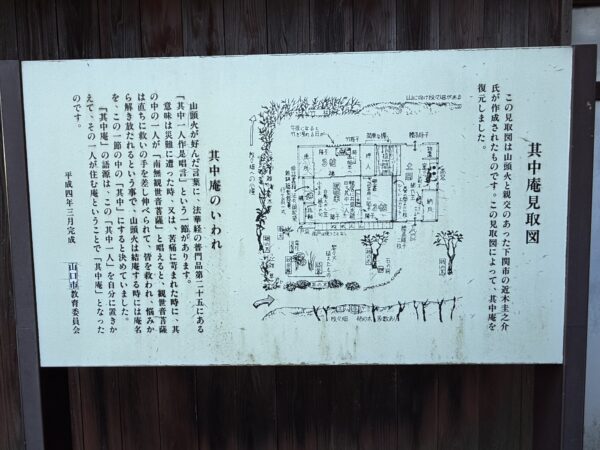 其中庵見取図
この見取図は山頭火と親交のあった下関市の近木圭之介
氏が作成されたものです。この見取図によって、其中庵を
復元しました。
其中庵のいわれ
山頭火が好んだ言葉に、法華経の普門品第二十五にある
「其中一人作是唱言」という一節があります。
意味は災難に遭った時、又は、苦痛に苛まれた時に、其
の中の一人が「南無観世音菩薩」と唱えると、観世音菩薩
は直ちに救いの手を差し伸べられて、皆を救われ、悩みか
ら解き放たれるという事で、山頭火は結庵する時には庵名
を、この一節の中の「其中」にすると決めていました。
「其中庵」の語源は、この「其中一人」を自分に置きか
えて、その一人が住む庵ということで「其中庵」となった
のです。
平成四年三月完成
山口市教育委員会